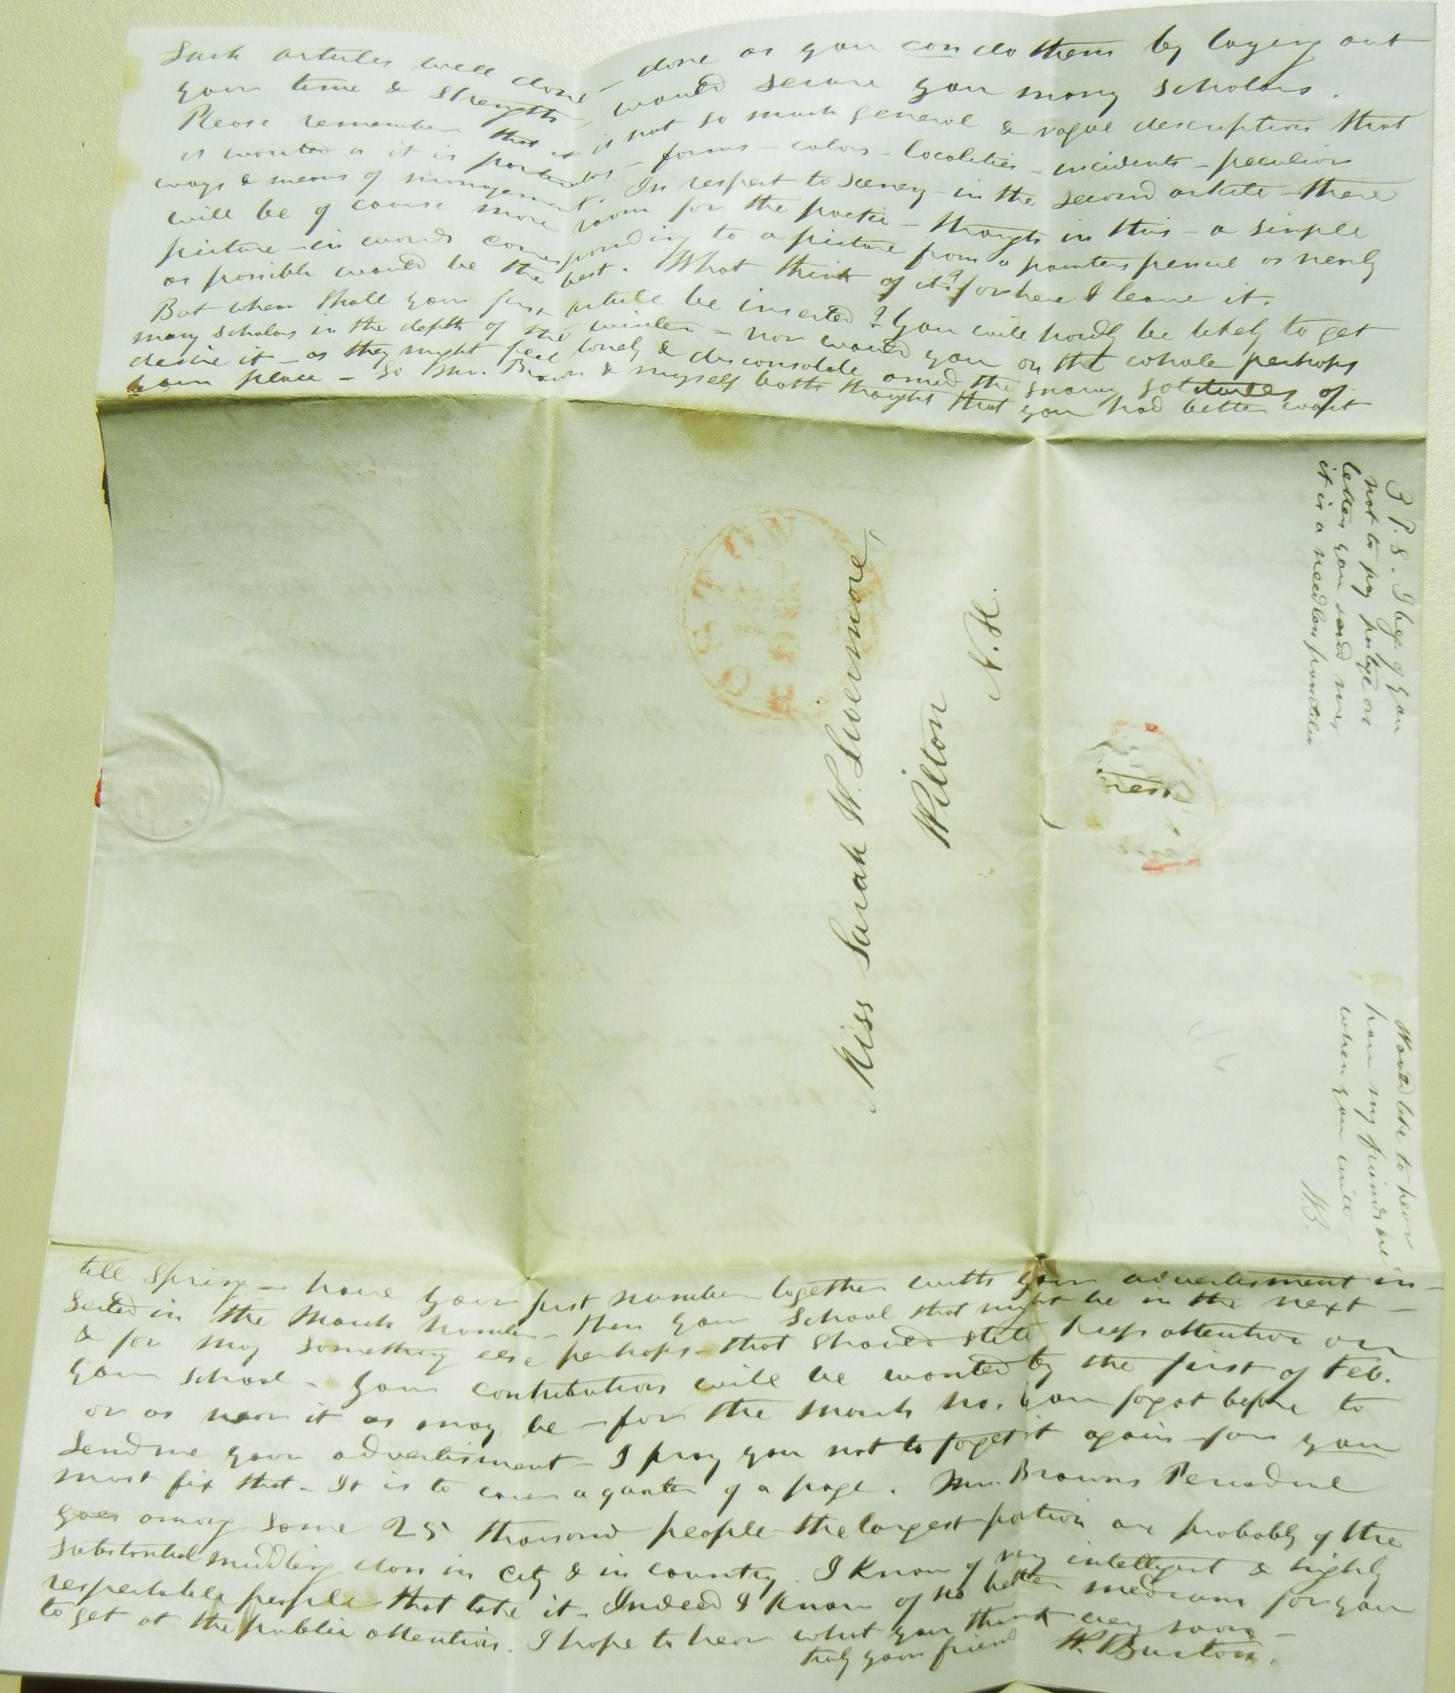 Such articles well done – done as you can do them by laying out
your time & strength, would secure you many scholars.
Please remember that it is not so much general & vague description that
is wanted as it is particulars – forms – colors – localities – incidents – peculiar
ways & means of management. In respect to Scenery – in the second article – there
will be of course more room for the poetic – though in this – a simple
picture – in words corresponding to a picture from a painters pencil as nearly
as possible would be the best. What think of it? for here I leave it.
But when shall your first article be inserted? You will hardly be likely to get
many scholars in the depth of the winter – nor would you on the whole perhaps
desire it – as they might feel lonely & disconsolate amid the snowy solitudes of
your place – So Mr. Brown & myself both thought that you had better wait
3 P.S. I beg of you
not to pay postage on
letters you send me,
it is a needless
Miss Sarah W. Livermore,
Wilton
N. H.
BOSTON
Would like to hear
how my friends are
when you write
W.B.
till Spring – have your first number together with your advertisment in-
serted in the March number – then your School that might be in the next –
& for may something else perhaps – that should still keep attention on
your school – Your contribution will be wanted by the first of Feb.
or as near it as may be – for the March No. You forgot before to
send me your advertisment – I pray you not to forget it again for you
must fix that – It is to cover a quarter of a page. Mr. Browns Periodical
goes among some 25 thousand people – the largest portion are probably of the
substantial middling class in City & in country. I know of very intelligent & highly
respectable people that take it. Indeed I know of no better medium for you
to get at the public attention. I hope to hear what you think very soon –
truly your friend W. Burton.